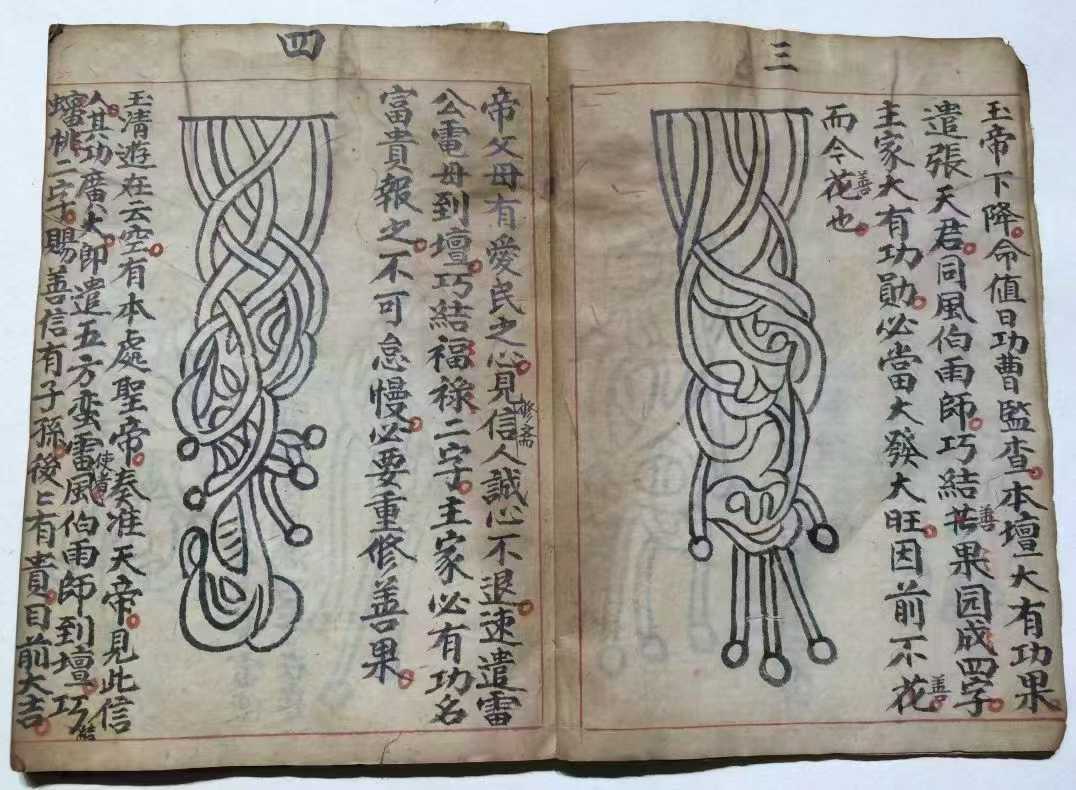 三
玉帝下降命值日功曹監查本壇大有功果
遣張天君同風伯雨師巧結善果园成四字
主家大有功勛必當大發大旺因前不花善
而今花善也
四
帝父母有愛民之心見信人誠心不退速遣雷
修斋
公電母到壇巧結福祿二字主家必有功名
富貴報之不可怠慢必要重修善果
玉清遊在云空有本處聖帝奏准天帝見此信
人其功廣大即遣五方蛮雷使者風伯雨師到壇巧結
蟠桃二字賜善信有子孫後々有貴目前大吉